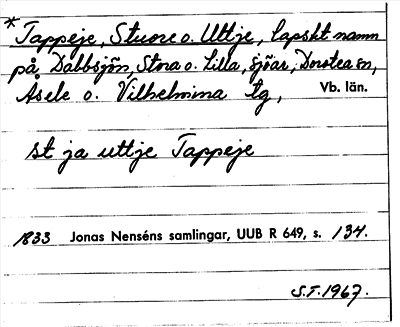 * Tappeje, Stuore o. Uttje, lapskt namn
på Dabbsjön, Stora o. Lilla, sjöar, Dorotea sn,
Åsele o. Vilhelmina tg, Vb. län.
st ja uttje Tappeje
1833 Jonas Nenséns samlingar, UUB R 649, s. 134.
S.T. 1967.